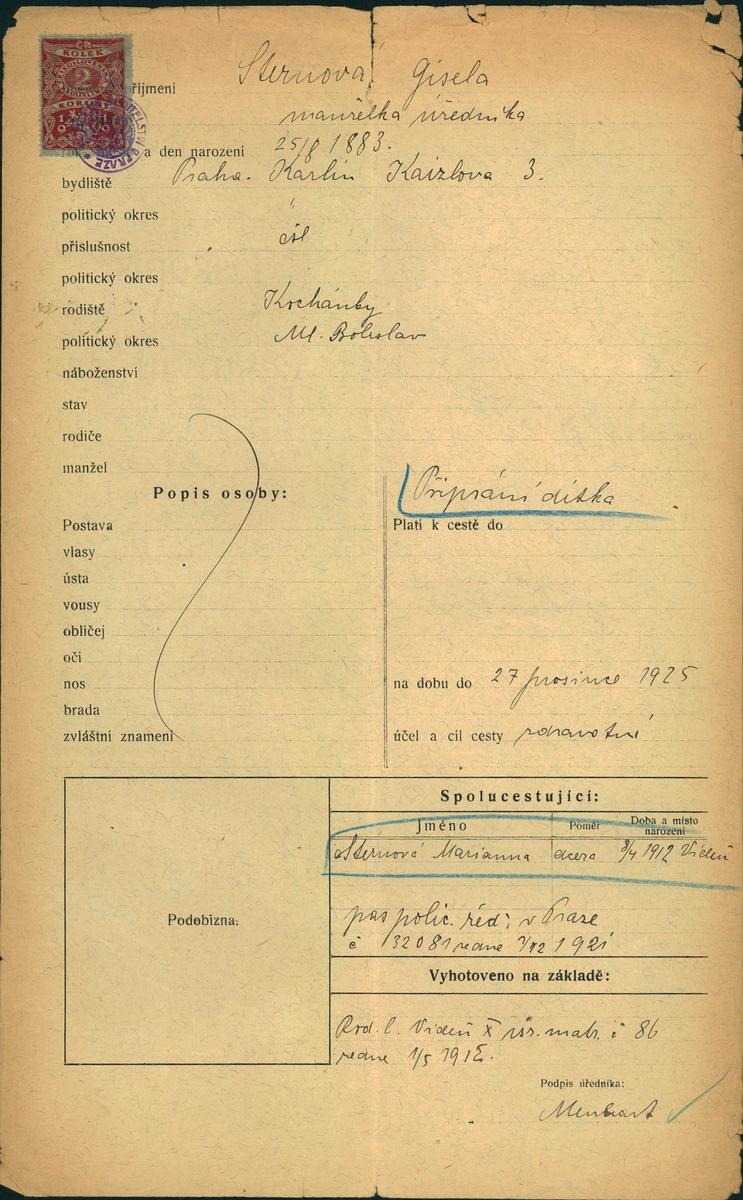 KOLEK
2
KORUNY
příjmení Sternová Gisela
manželka úředníka
a den narození 25/8 1883.
bydliště Praha. Karlín Kaizlova 3.
politický okres
příslušnost čsl
politický okres
rodiště Kochánky
politický okres Ml. Boleslav
náboženství
stav
rodiče
manžel
Popis osoby:
Postava
vlasy
ústa
vousy
obličej
oči
nos
brada
zvláštní znamení
Připsání dítka
Platí k cestě do
na dobu do 27 prosince 1925
účel a cíl cesty zdravotní
Podobizna.
Spolucestující:
Jméno Poměr Doba a místo narození
Sternová Marianna dcera 8/4 1912 Vídeň
pas polic. řed: v Praze
č 132081 ze dne 1921
Vyhotoveno na základě:
Rod. l. Vídeň X isr. matr. č 86
ze dne 1/5 1912.
Podpis úředníka: